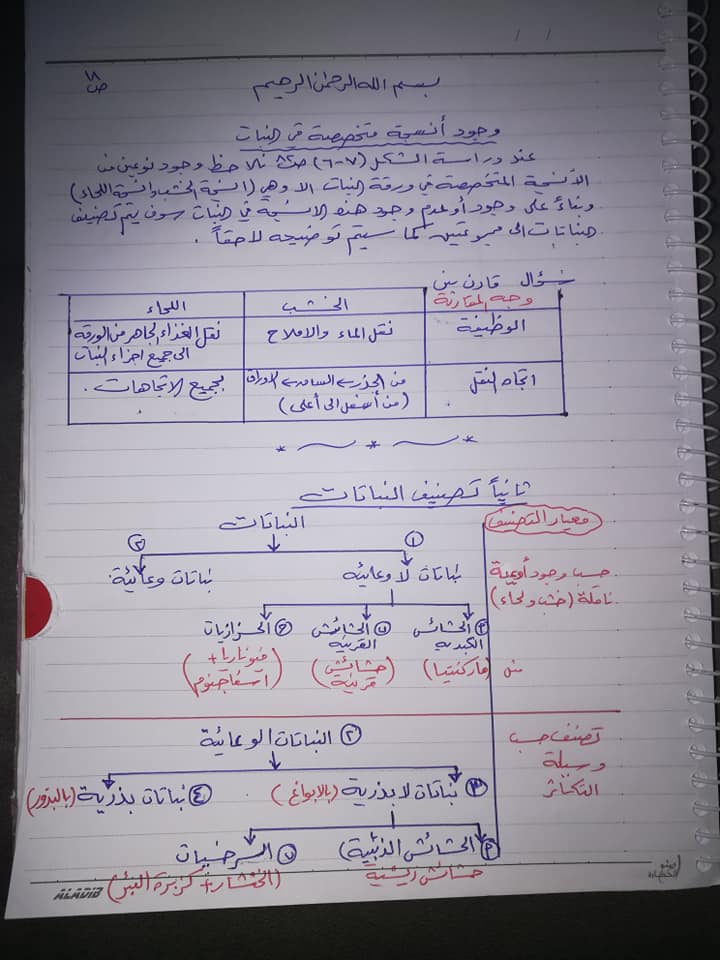 ص ١٨
بسم الله الرحمن الرحيم
وجود أنسجة متخصصة في النبات
عند دراسة الشكل (٧-٦) نلاحظ وجود نوعين من
الأنسجة المتخصصة في ورقة النبات الا وهي (انسجة الخشب وانسجة اللحاء)
وبناءً على وجود أو عدم وجود هذه الانسجة في النبات سوف يتم تصنيف
النباتات الى مجموعتين كما سيتم توضيحه لاحقاً .
سؤال قارن بين
وجه المقارنة الخشب اللحاء
الوظيفة نقل الماء والاملاح نقل الغذاء الجاهز من الورقة
الى جميع اجزاء النبات
اتجاه النقل من الجذر الساق الاوراق بجميع الاتجاهات .
(من أسفل الى أعلى)
ثانياً تصنيف النباتات
معيار التصنيف النباتات
① ②
حسب وجود أوعية نباتات لا وعائية نباتات وعائية
ناقلة (خشب ولحاء)
الحشائش الكبدية
الحشائش القرنية
الحزازيات
مثل (ماركنتيا) (حشائش قرنية) (فيوناريا + اسفاجنوم)
تصنيف حسب ② النباتات الوعائية
وسيلة
التكاثر ③ نباتات لا بذرية (بالابواغ) ④ نباتات بذرية (بالبذور)
الحشائش الذئبية) السرخسيات
حشائش رئيسية (الخنشار + كزبرة البئر)
ALADIB